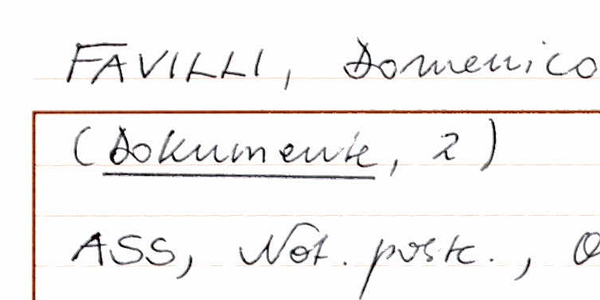 FAVILLI, Domenico
(Dokumente, 2)
ASS, Not. postc.,